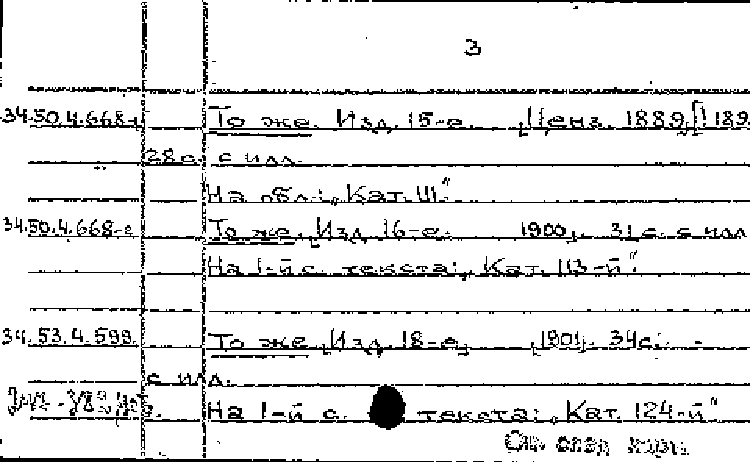 3
34.50.4.668-д То же. Изд. 15-е. [Ценз. 1889] 189
28с. с илл.
На обл.: „Кат. 111."
34.50.4.668-е То же. Изд. 16-е. 1900. 31 с. с илл
На 1-й с. текста: „Кат. 113-й"
34.53.4.599. То же. Изд. 18-е. 1901. 34с.
с илл.
На 1-й с. текста: „Кат. 124-й"
См. след. карт.